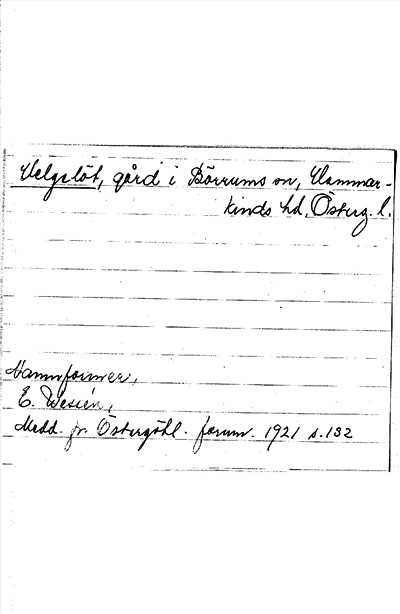 Velgslöt, gård i Börrums sn, Hammar-
kinds hd, Österg. l.
Namnformer,
E. Wessén,
Medd. fr. Östergötl. fornm. 1921 s. 132